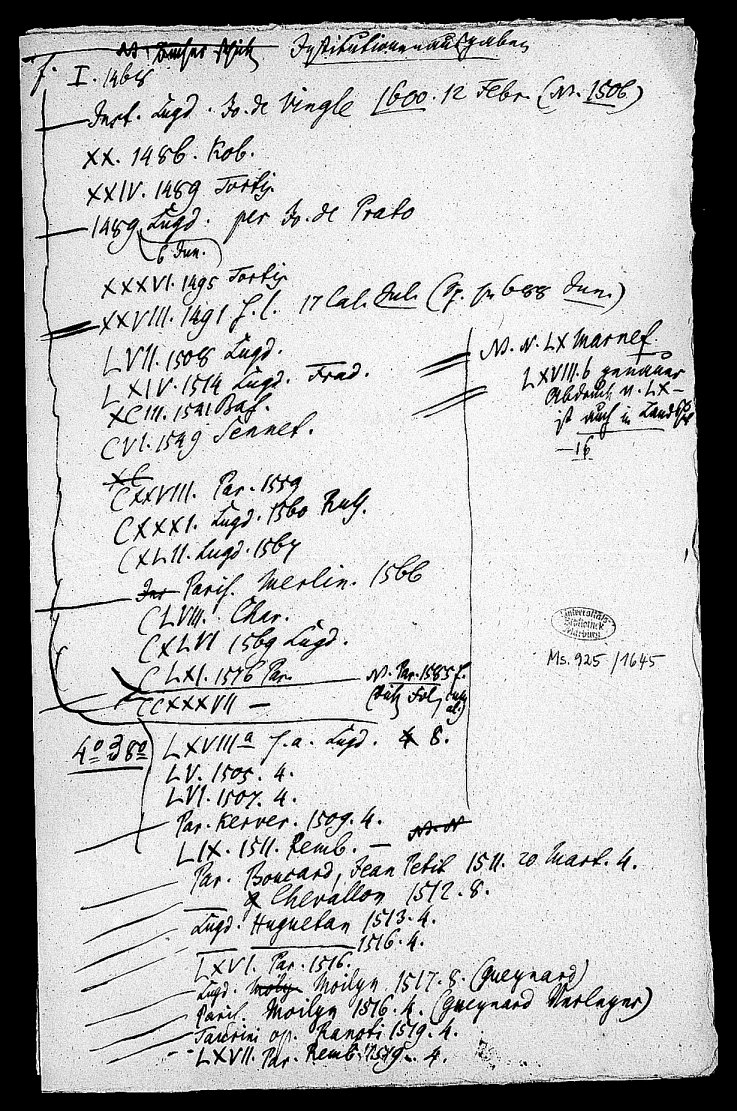 Institutionenausgaben
f. I. 1468
Inst. Lugd. Jo. de Vingle 1600. 12 Febr. (N. 1506)
XX. 1486. Kob.
XXIV. 1489 Tortis.
1489 Lugd. per Jo. de Prato
6 Jun.
XXXVI. 1495 Tortis
XXVIII. 1491 f. l. 17 Cal. Jul. (688 Jun.)
LVII. 1508 Lugd.
LXIV. 1514 Lugd. Frad.
XCIII. 1541 Bas.
CVI. 1549 Sennet.
N. N. LX Marnef.
LXVIII.b genauer
Abdruck v. LX –
ist auch in
– 16
XC
CXXVIII. Par. 1559
CXXXI. Lugd. 1560
CXLII. Lugd. 1567
Paris. Merlin. 1566
CLVIII. Char.
CXLVI 1569 Lugd.
CLXI. 1576 Par.
N. Par. 1585 f.
CCXXXVII –
4º 8º
LXVIIIa s. a. Lugd. 8.
LV. 1505. 4.
LVI. 1507. 4.
Par. Kerver. 1509. 4.
LIX. 1511. Remb. –
Par. Boucard, Jean Petit 1511. 20 Mart. 4.
Chevallon 1512. 8.
Lugd. Huguetan 1513. 4.
1516. 4.
LXVI. Par. 1516.
Lugd. Moilyn 1517. 8. (Gueynard)
Paris. Moilyn 1516. 4. (Gueynard Verleger)
Taurini op. Ranoti 1519. 4.
LXVII. Par. Remb. 1519. 4.
Universitäts
Bibliothek
Marburg
Ms. 925/1645